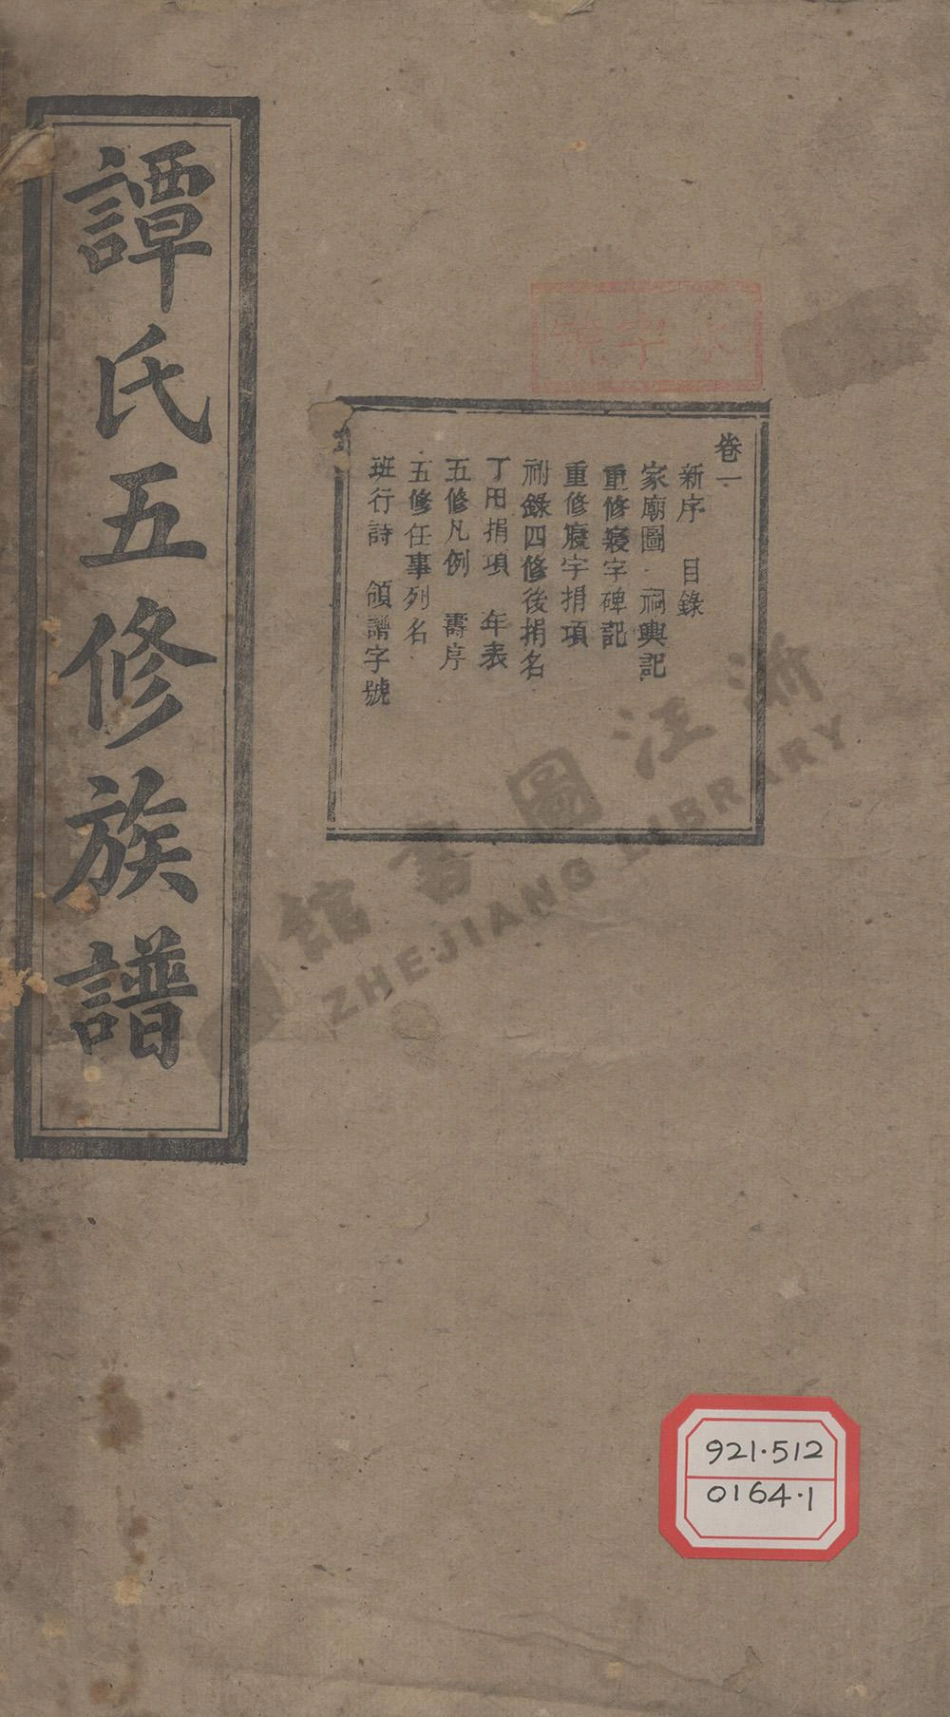 譚氏五修族譜
卷一
新序 目錄
家廟圖 祠興記
重修寢字碑記
重修寢字捐項
祔錄四修後捐名
丁田捐項 年表
五修凡例 壽序
五修任事列名
班行詩 領譜字號
浙江圖書館
ZHEJIANG LIBRARY
921.512
0164.1